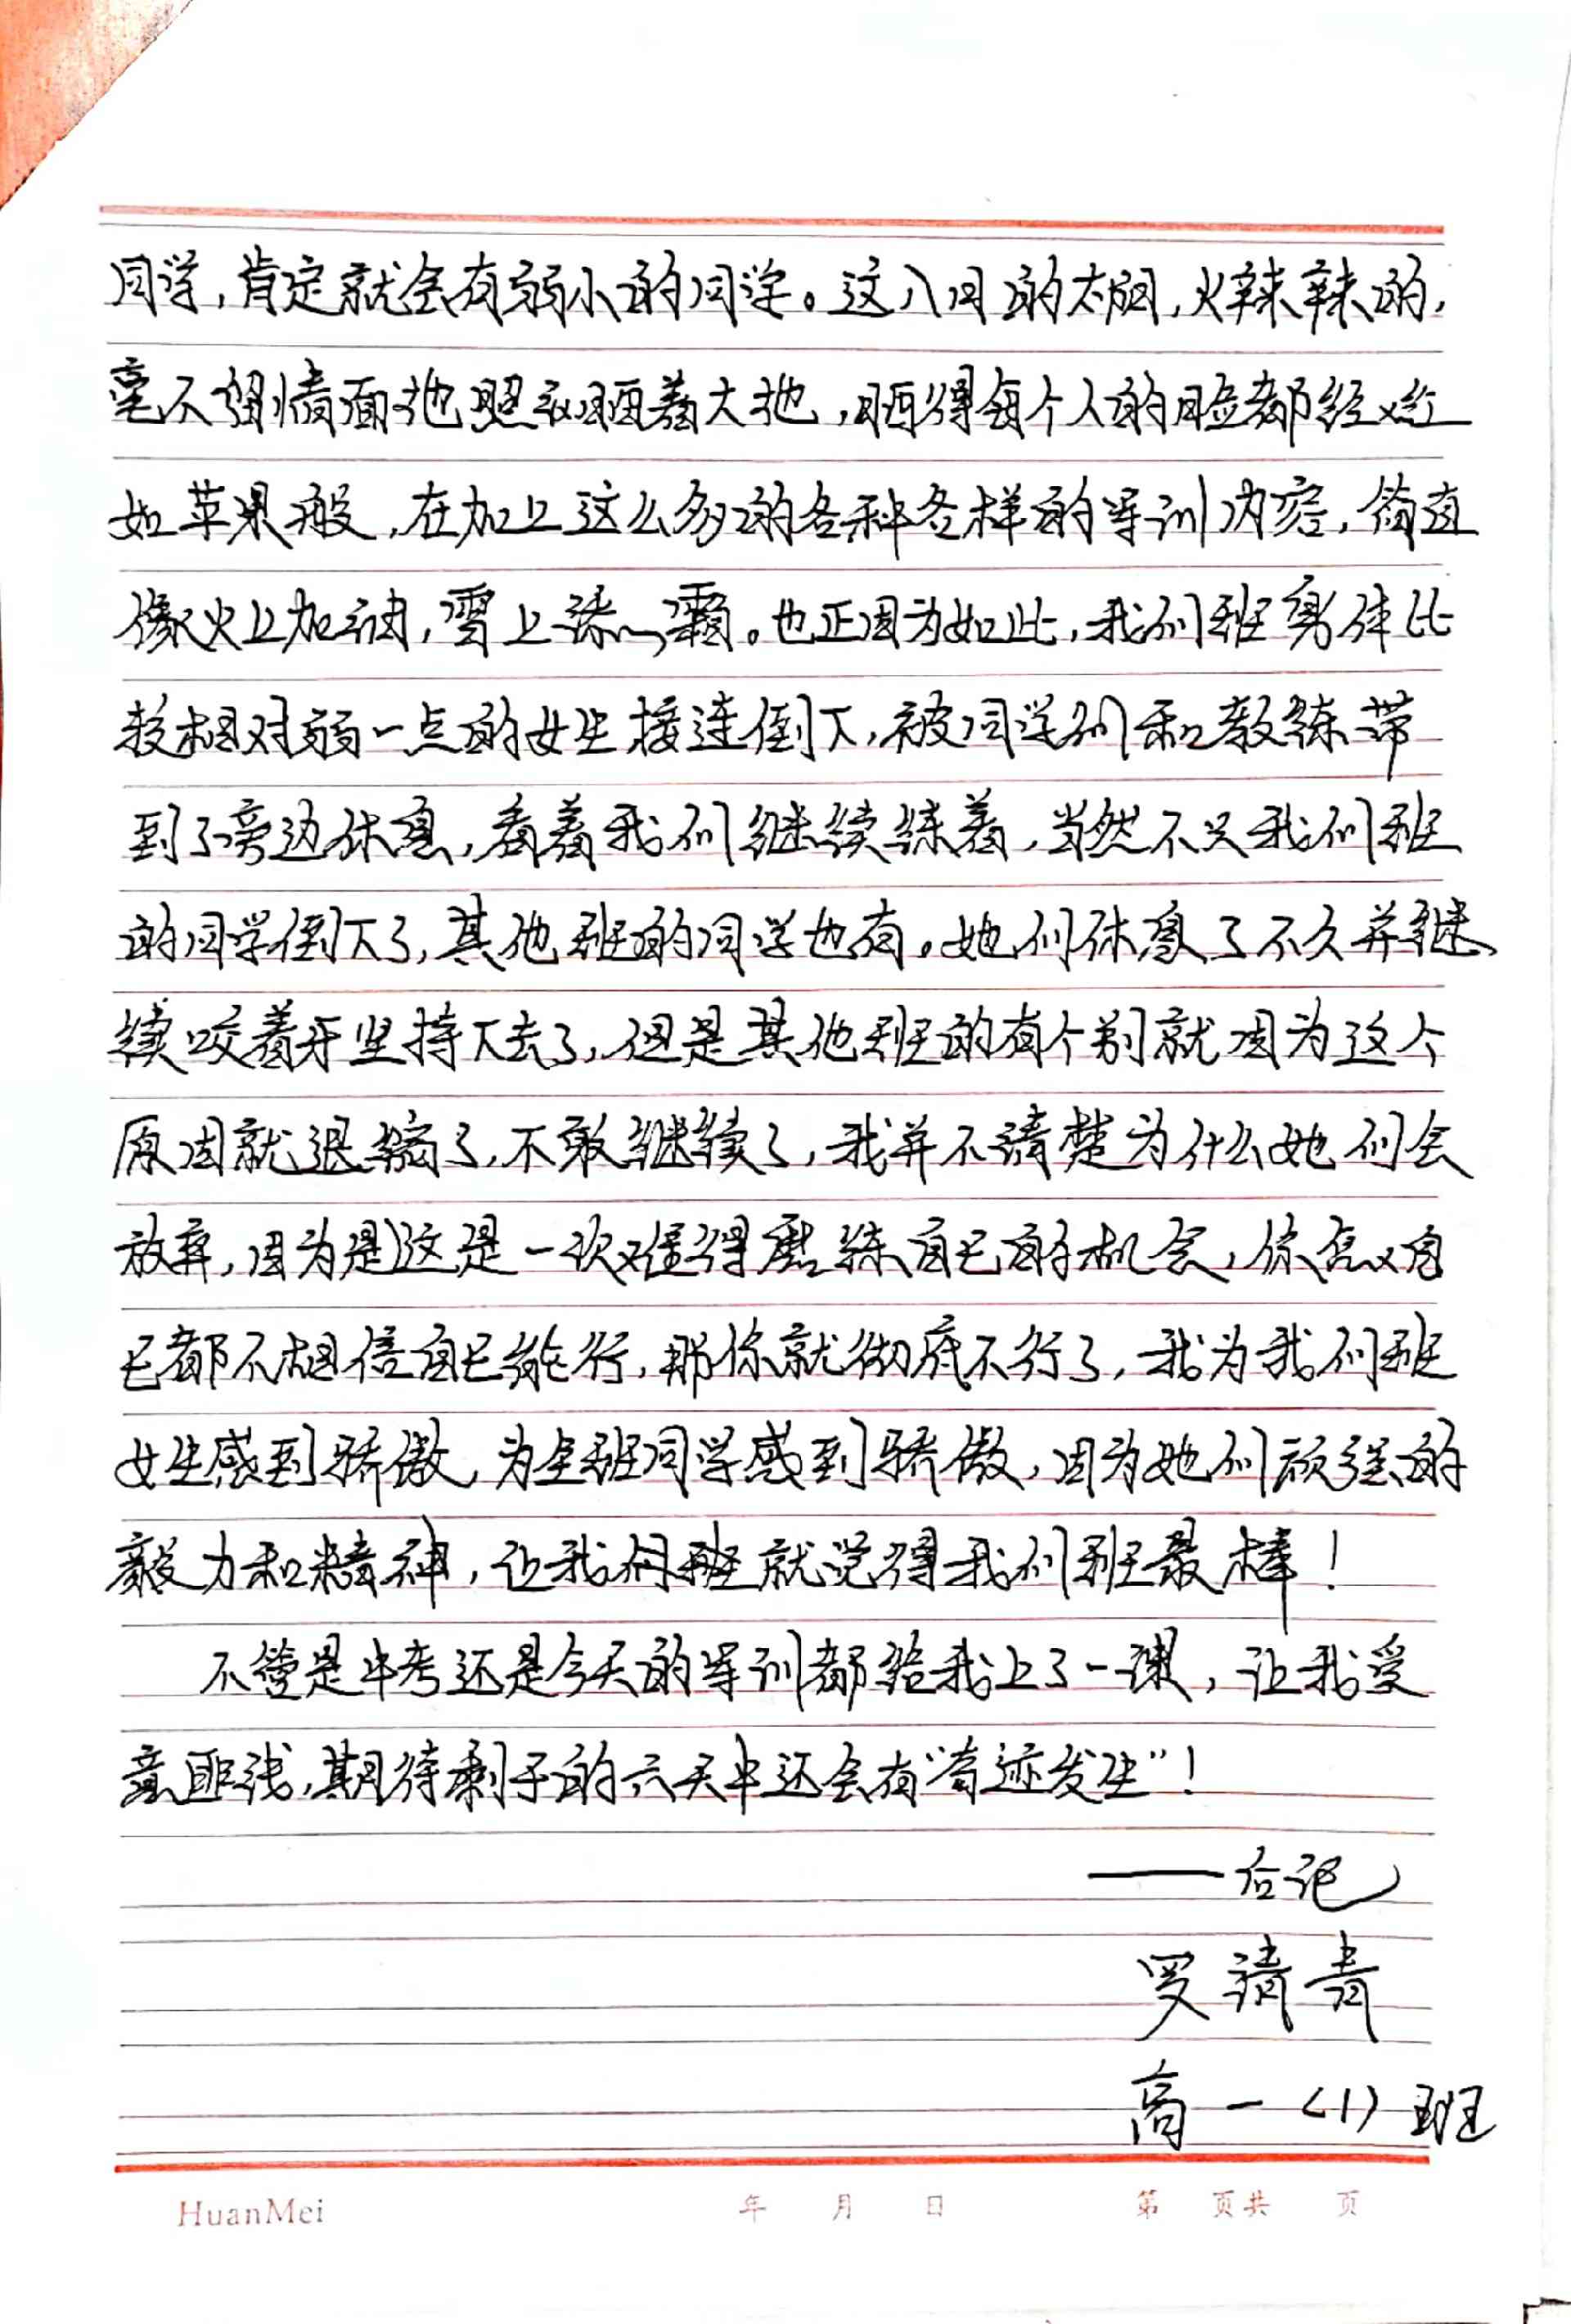 同学，肯定就会有弱小的同学。这八月的太阳，火辣辣的，
毫不留情面地照晒着大地，晒得每个人的脸都红
如苹果般，在加上这么多的各种各样的军训内容，简直
像火上加油，雪上添霜。也正因为如此，我们班身体比
较相对弱一点的女生接连倒下，被同学们和教练带
到了旁边休息，看着我们继续练着，当然不只我们班
的同学倒下了，其他班的同学也有。她们休息了不久并继
续咬着牙坚持下去了，但是其他班的有个别就因为这个
原因就退缩了，不敢继续了，我并不清楚为什么她们会
放弃，因为是这是一次难得磨练自己的机会，你自
己都不相信自己能行，那你就彻底不行了，我为我们班
女生感到骄傲，为全班同学感到骄傲，因为她们顽强的
毅力和精神，让我们班就觉得我们班最棒！
不管是中考还是今天的军训都给我上了一课，让我受
益匪浅，期待剩于的六天中还会有“奇迹发生”！
——后记
罗请青
高一（1）班
HuanMei 年 月 日 第 页共 页